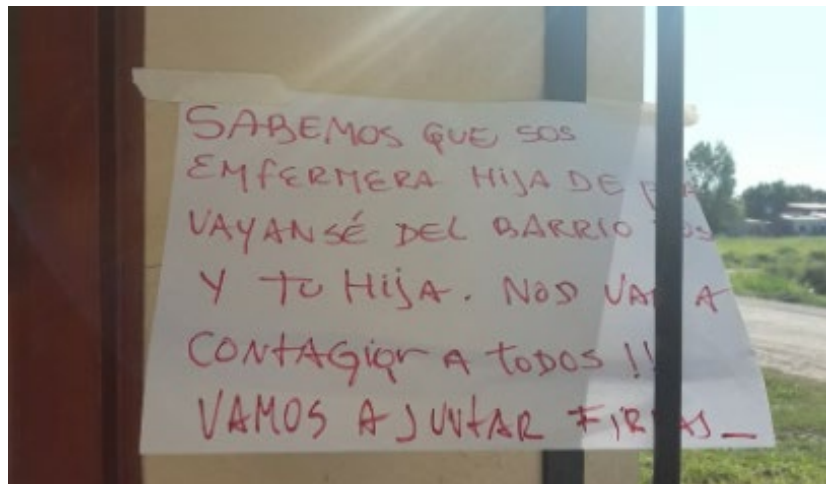 SABEMOS QUE SOS
EMFERMERA HIJA DE
VAYANSÉ DEL BARRIO VOS
Y TU HIJA. NOS VAN A
CONTAGIAR A TODOS!!
VAMOS A JUNTAR FIRMAS_